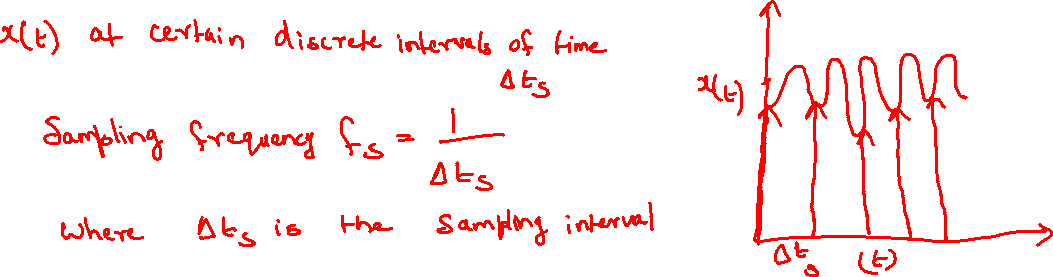 x(t) at certain discrete intervals of time
Δts
Sampling frequency fs = 1
Δts
where Δts is the sampling interval
x(t)
Δts (t)